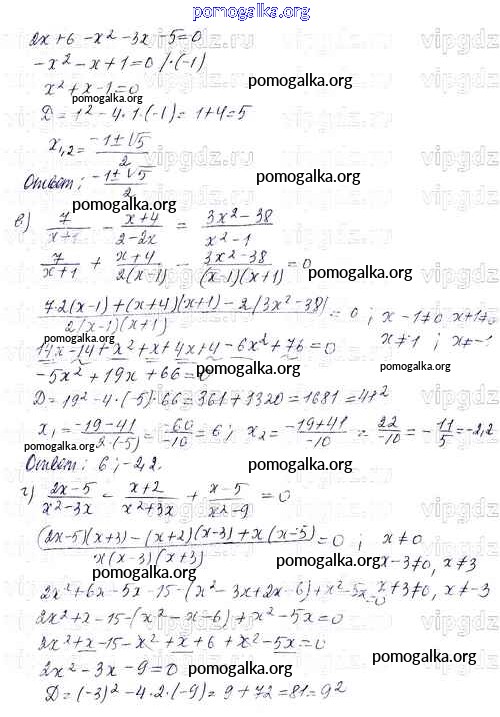 pomogalka.org
2x+6-x²-3x-5=0
-x²-x+1=0 /·(-1)
x²+x-1=0
pomogalka.org
pomogalka.org
D=1²-4·1·(-1)=1+4=5
x₁,₂=(-1±√5)/2
pomogalka.org
Ответ: (-1±√5)/2
pomogalka.org
в) 7/(x+1) - (x+4)/(2-2x) = (3x²-38)/(x²-1)
7/(x+1) + (x+4)/(2(x-1)) - (3x²-38)/((x-1)(x+1)) = 0
pomogalka.org
(7·2(x-1)+(x+4)(x+1)-2(3x²-38))/(2(x-1)(x+1)) = 0 ; x-1≠0 x+1≠0
pomogalka.org
x≠1 ; x≠-1
14x-14+x²+x+4x+4-6x²+76=0
-5x²+19x+66=0
pomogalka.org
D=19²-4·(-5)·66=361+1320=1681=41²
x₁=(-19-41)/(2·(-5))=-60/-10=6; x₂=(-19+41)/-10=22/-10=-11/5=-2,2
pomogalka.org
Ответ: 6; -2,2.
pomogalka.org
г) (2x-5)/(x²-3x) - (x+2)/(x²+3x) + (x-5)/(x²-9) = 0
pomogalka.org
((2x-5)(x+3)-(x+2)(x-3)+x(x-5))/(x(x-3)(x+3)) = 0 ; x≠0
x-3≠0, x≠3
pomogalka.org
2x²+6x-5x-15-(x²-3x+2x-6)+x²-5x=0
x+3≠0, x≠-3
2x²+x-15-(x²-x-6)+x²-5x=0
pomogalka.org
2x²+x-15-x²+x+6+x²-5x=0
2x²-3x-9=0
pomogalka.org
pomogalka.org
D=(-3)²-4·2·(-9)=9+72=81=9²
vipgdz.ru